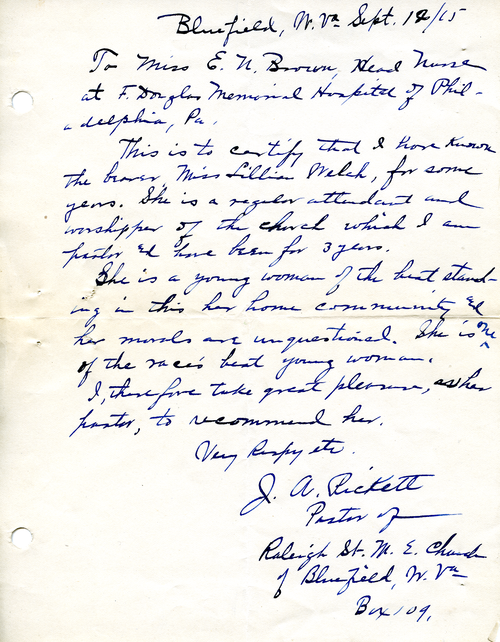 Bluefield, W. Va Sept. 12/15
To Miss E. N. Brown, Head Nurse
at F. Douglas Memorial Hospital of Phil-
adelphia, Pa.
This is to certify that I have known
the bearer, Miss Lillian Welch, for some
years. She is a regular attendant and
worshipper of the church which I am
pastor &d have been for 3 years.
She is a young woman of the best stand-
ing in this her home community &d
her morals are unquestional. She is one
of the race's best young woman.
I, therefore take great pleasure, as her
pastor, to recommend her.
Very Respy etc.
J. A. Rickett
Pastor of
Raleigh St. M. E. Church
of Bluefield, W. Va
Box 109.